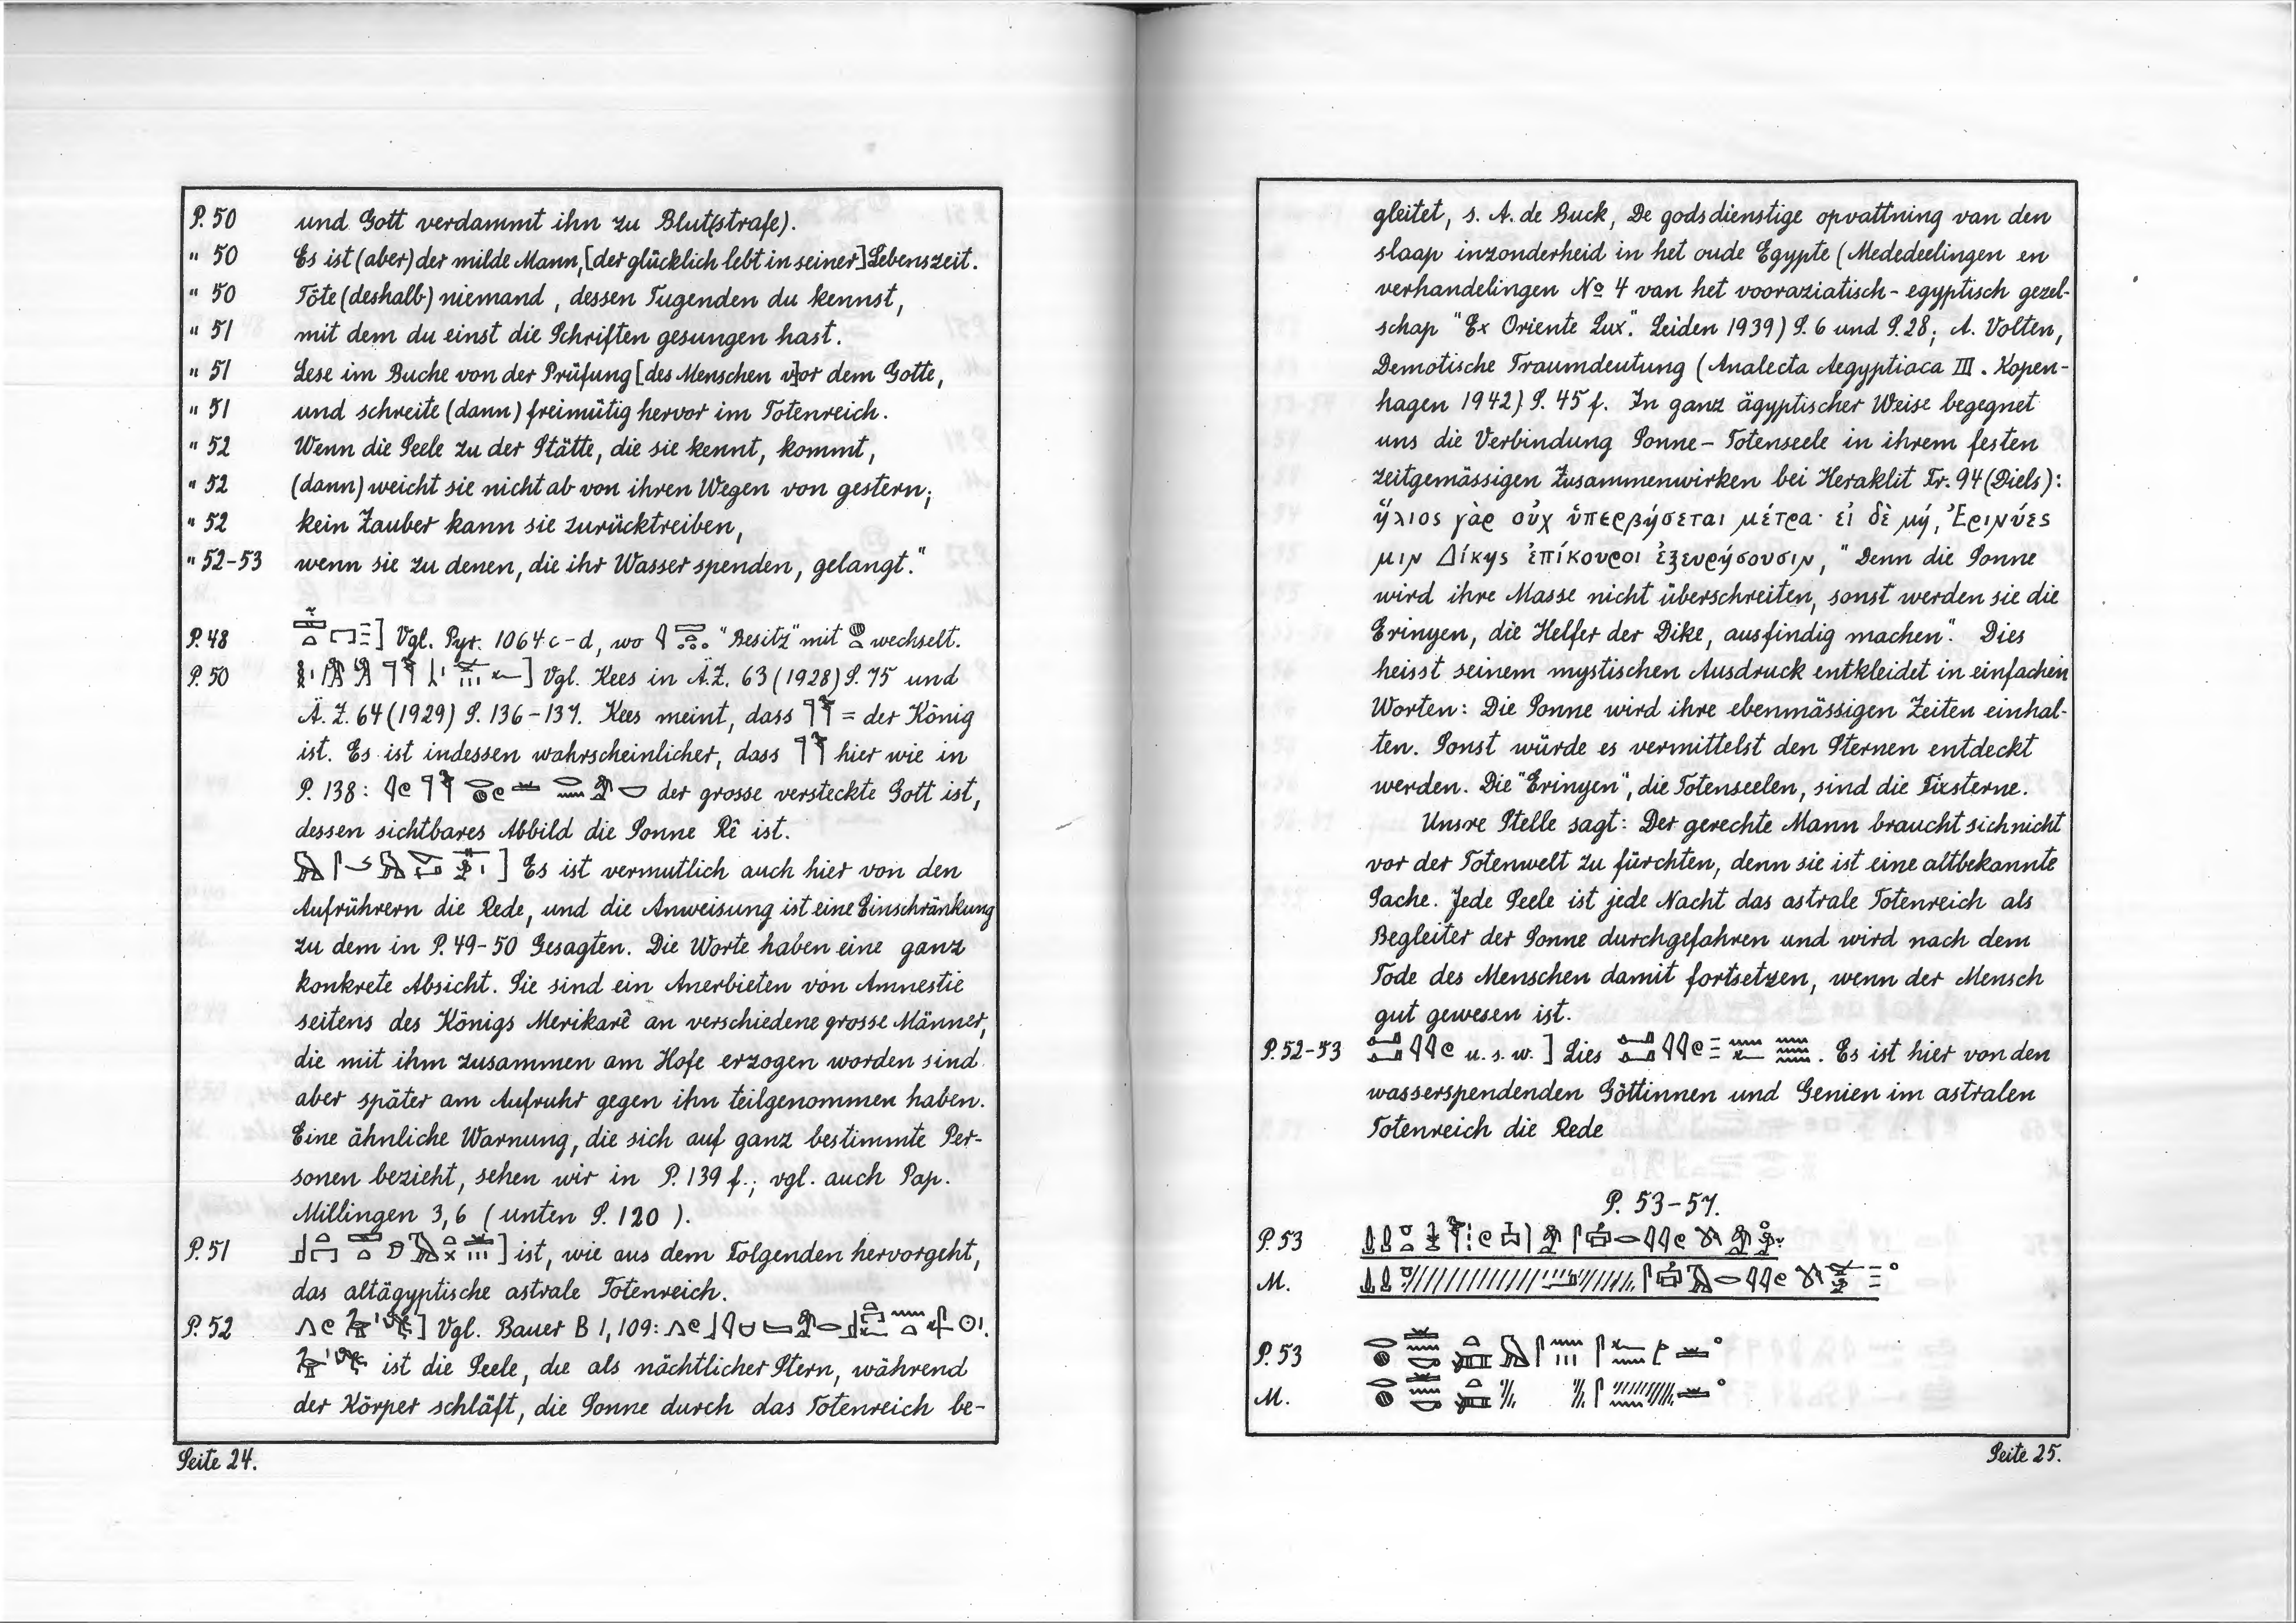 P. 50 und Gott verdammt ihn zu Blut(strafe).
" 50 Es ist (aber) der milde Mann, [der glücklich lebt in seiner] Lebenszeit.
" 50 Töte (deshalb) niemand, dessen Tugenden du kennst,
" 51 mit dem du einst die Schriften gesungen hast.
" 51 Lese im Buche von der Prüfung [des Menschen v]or dem Gotte,
" 51 und schreite (dann) freimütig hervor im Totenreich.
" 52 Wenn die Seele zu der Stätte, die sie kennt, kommt,
" 52 (dann) weicht sie nicht ab von ihren Wegen von gestern;
" 52 kein Zauber kann sie zurücktreiben,
" 52-53 wenn sie zu denen, die ihr Wasser spenden, gelangt."
P. 48 ] Vgl. Pyr. 1064 c-d, wo "Besitz" mit wechselt.
P. 50 ] Vgl. Kees in Ä.Z. 63 (1928) S. 75 und
Ä.Z. 64 (1929) S. 136-137. Kees meint, dass = der König
ist. Es ist indessen wahrscheinlicher, dass hier wie in
P. 138: der grosse versteckte Gott ist,
dessen sichtbares Abbild die Sonne Rê ist.
] Es ist vermutlich auch hier von den
Aufrührern die Rede, und die Anweisung ist eine Einschränkung
zu dem in P. 49-50 Gesagten. Die Worte haben eine ganz
konkrete Absicht. Sie sind ein Anerbieten von Amnestie
seitens des Königs Merikarê an verschiedene grosse Männer,
die mit ihm zusammen am Hofe erzogen worden sind
aber später am Aufruhr gegen ihn teilgenommen haben.
Eine ähnliche Warnung, die sich auf ganz bestimmte Per-
sonen bezieht, sehen wir in P. 139 f.; vgl. auch Pap.
Millingen 3,6 (unten S. 120).
P. 51 ] ist, wie aus dem Folgenden hervorgeht,
das altägyptische astrale Totenreich.
P. 52 ] Vgl. Bauer B 1, 109:
ist die Seele, die als nächtlicher Stern, während
der Körper schläft, die Sonne durch das Totenreich be-
Seite 24.
gleitet, s. A. de Buck, De godsdienstige opvattning van den
slaap inzonderheid in het oude Egypte (Mededeelingen en
verhandelingen No 4 van het vooraziatisch-egyptisch gezel-
schap "Ex Oriente Lux". Leiden 1939) S. 6 und S. 28; A. Volten,
Demotische Traumdeutung (Analecta Aegyptiaca III. Kopen-
hagen 1942) S. 45 f. In ganz ägyptischer Weise begegnet
uns die Verbindung Sonne-Totenseele in ihrem festen
zeitgemässigen Zusammenwirken bei Heraklit Fr. 94 (Diels):
ἥλιος γὰρ οὐχ ὑπερβήσεται μέτρα· εἰ δὲ μή, Ἐρινύες
μιν Δίκης ἐπίκουροι ἐξευρήσουσιν, "Denn die Sonne
wird ihre Masse nicht überschreiten, sonst werden sie die
Erinyen, die Helfer der Dike, ausfindig machen". Dies
heisst seinem mystischen Ausdruck entkleidet in einfachen
Worten: Die Sonne wird ihre ebenmässigen Zeiten einhal-
ten. Sonst würde es vermittelst den Sternen entdeckt
werden. Die "Erinyen", die Totenseelen, sind die Fixsterne.
Unsre Stelle sagt: Der gerechte Mann braucht sich nicht
vor der Totenwelt zu fürchten, denn sie ist eine altbekannte
Sache. Jede Seele ist jede Nacht das astrale Totenreich als
Begleiter der Sonne durchgefahren und wird nach dem
Tode des Menschen damit fortsetzen, wenn der Mensch
gut gewesen ist.
P. 52-53 u. s. w. ] Lies . Es ist hier von den
wasserspendenden Göttinnen und Genien im astralen
Totenreich die Rede
P. 53-57.
P. 53
M.
P. 53
M.
Seite 25.